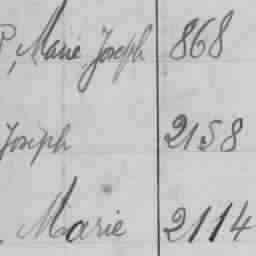 , Marie Joseph 868
Joseph 2158
Marie 2114